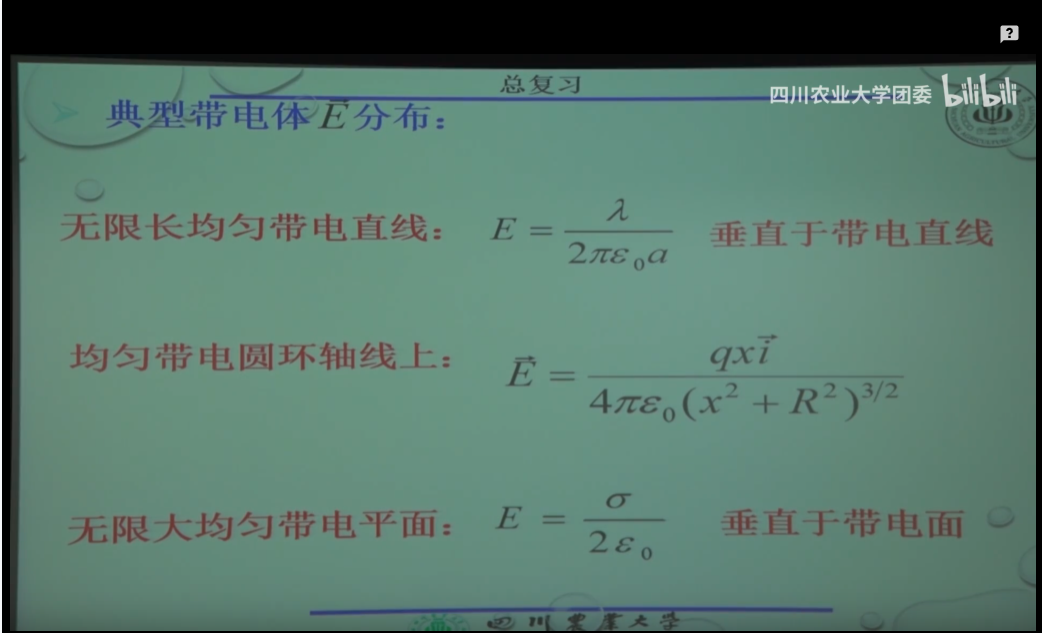 ?
总复习
四川农业大学团委 bilibili
典型带电体 $\vec{E}$ 分布：
无限长均匀带电直线： $E = \frac{\lambda}{2\pi\varepsilon_0 a}$ 垂直于带电直线
均匀带电圆环轴线上： $\vec{E} = \frac{qx\vec{i}}{4\pi\varepsilon_0(x^2+R^2)^{3/2}}$
无限大均匀带电平面： $E = \frac{\sigma}{2\varepsilon_0}$ 垂直于带电面
四川农业大学